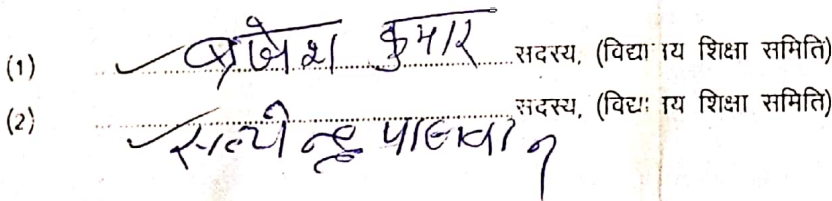 (1) ब्रजेश कुमार सदस्य, (विद्यालय शिक्षा समिति)
(2) सत्येन्द्र सदस्य, (विद्यालय शिक्षा समिति)